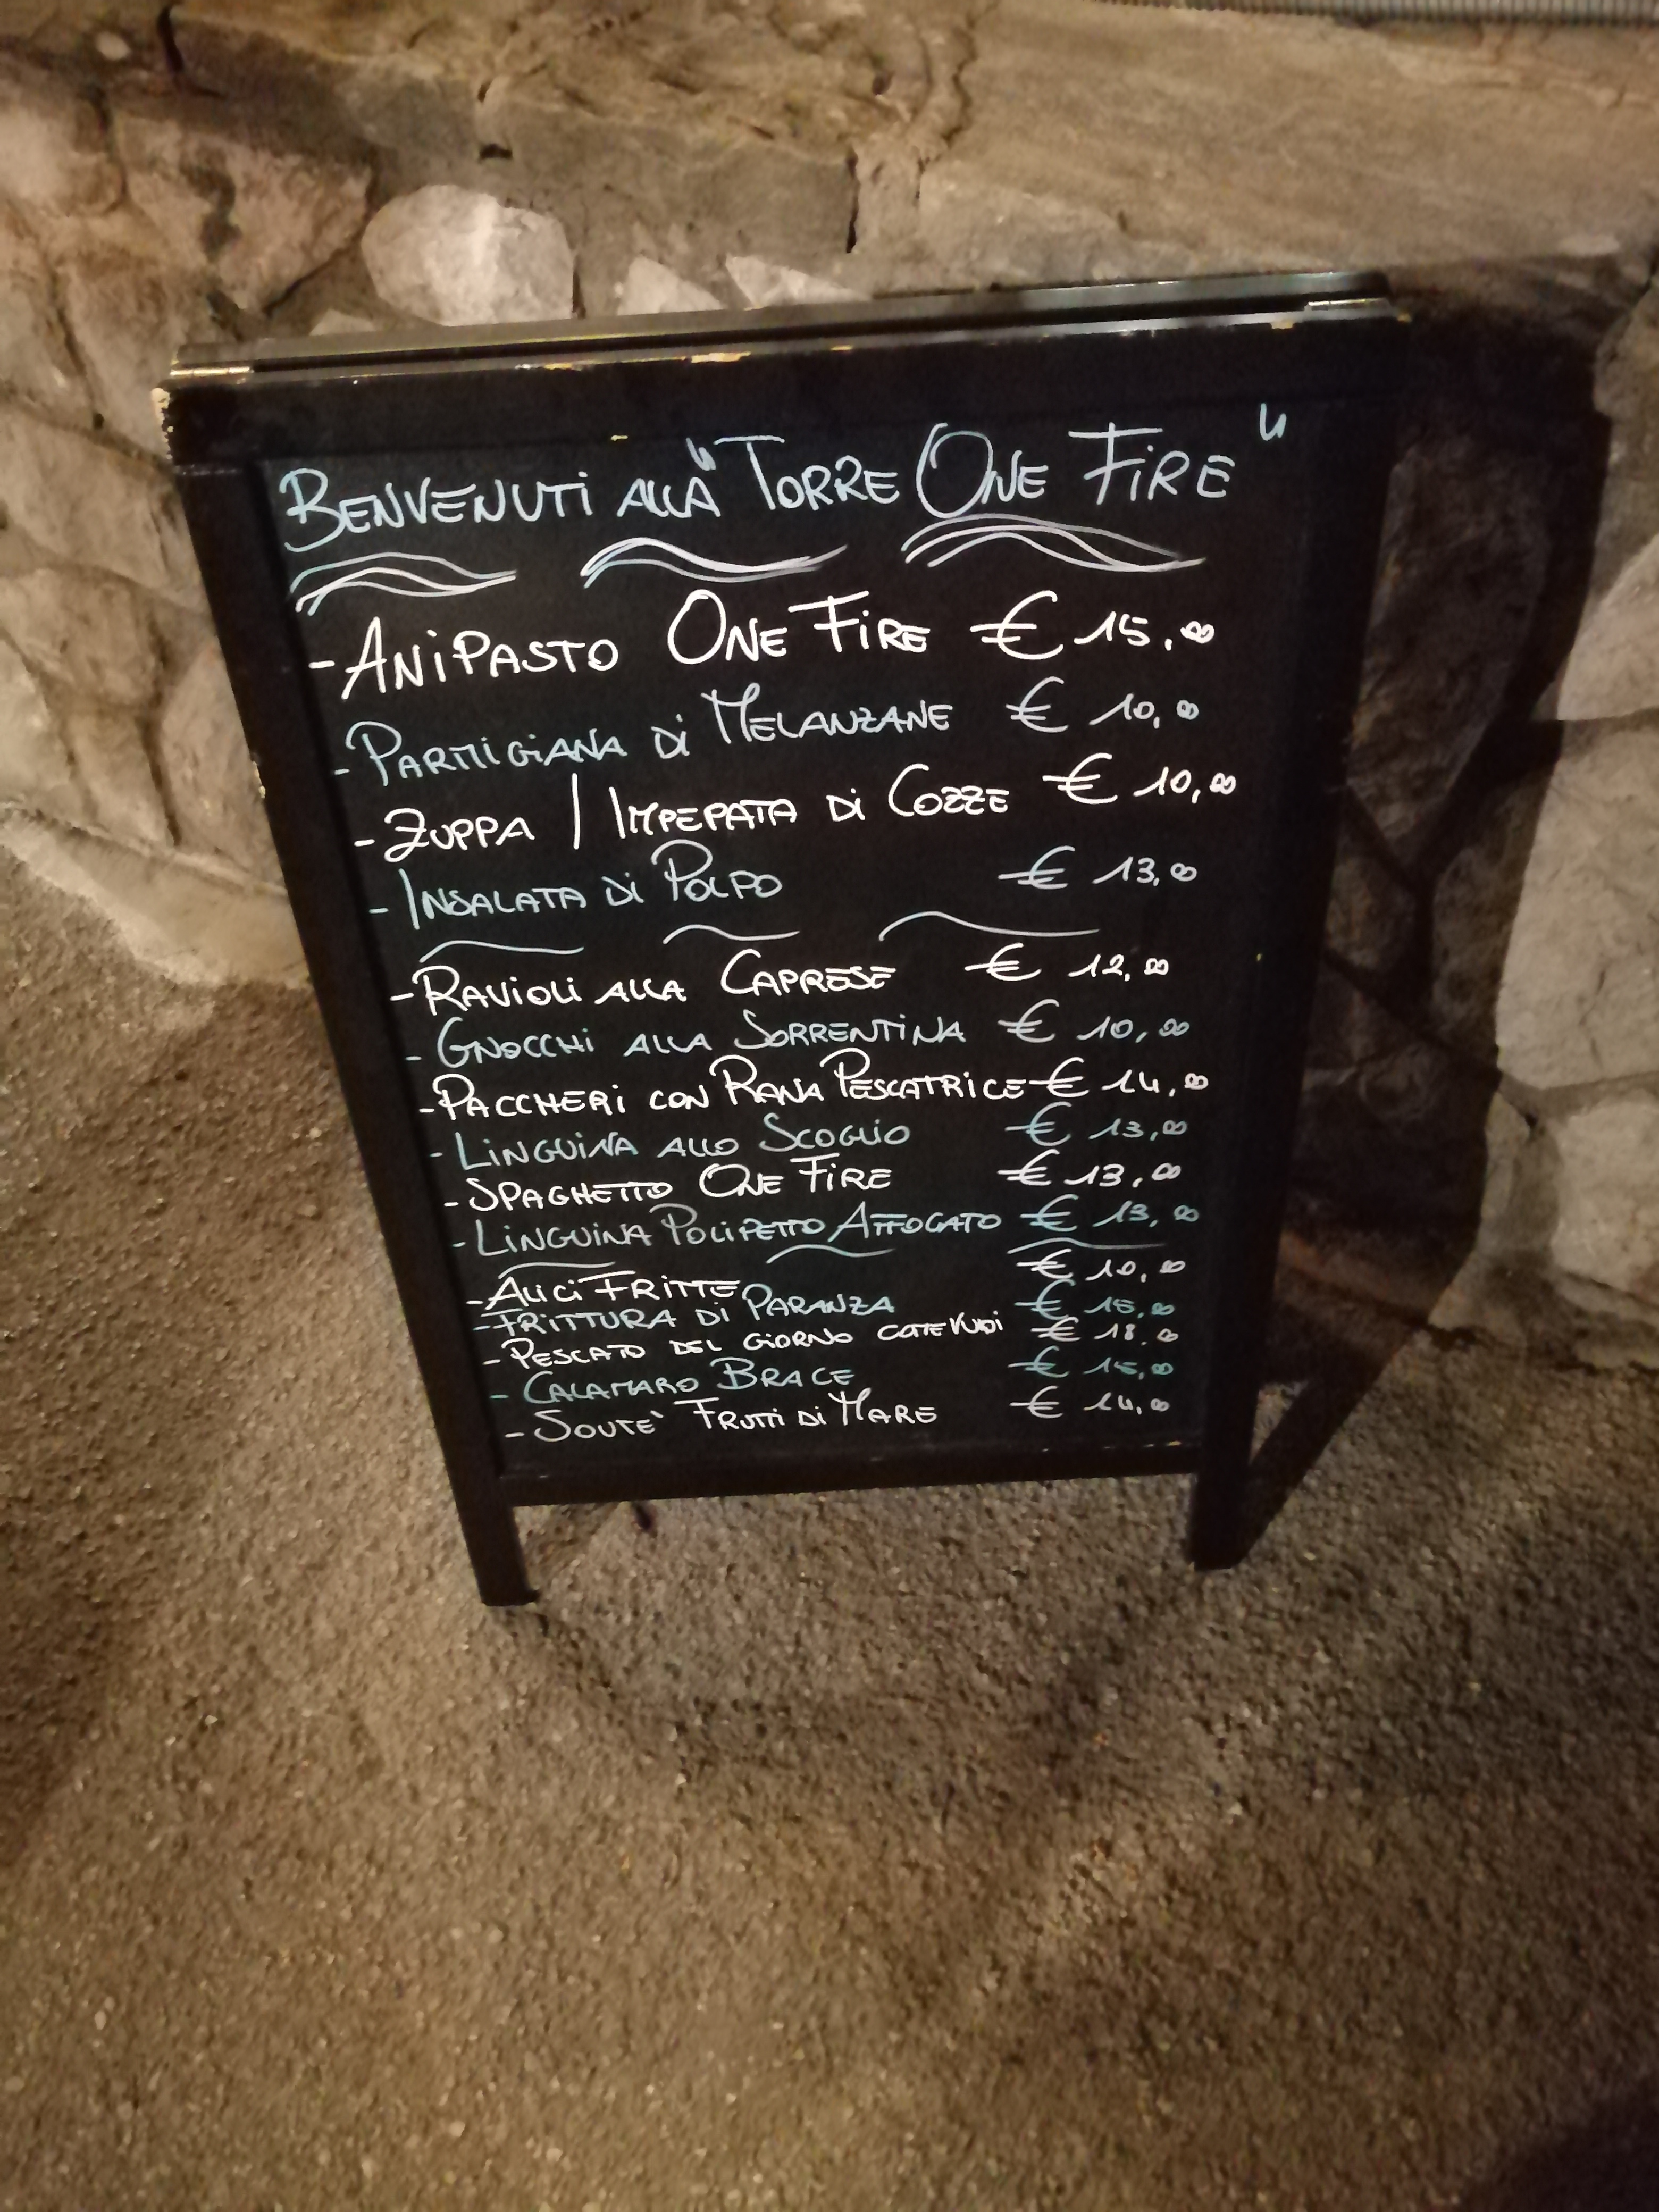 BENVENUTI ALLA "TORRE ONE FIRE"
- ANIPASTO ONE FIRE € 15,00
- PARMIGIANA DI MELANZANE € 10,00
- ZUPPA / IMPEPATA DI COZZE € 10,00
- INSALATA DI POLPO € 13,00
- RAVIOLI ALLA CAPRESE € 12,00
- GNOCCHI ALLA SORRENTINA € 10,00
- PACCHERI CON RANA PESCATRICE € 14,00
- LINGUINA ALLO SCOGLIO € 13,00
- SPAGHETTO ONE FIRE € 13,00
- LINGUINA POLIPETTO AFFOGATO € 13,00
- ALICI FRITTE € 10,00
- FRITTURA DI PARANZA € 15,00
- PESCATO DEL GIORNO € 18,00
- CALAMARO BRACE € 15,00
- SOUTE' FRUTTI DI MARE € 14,00